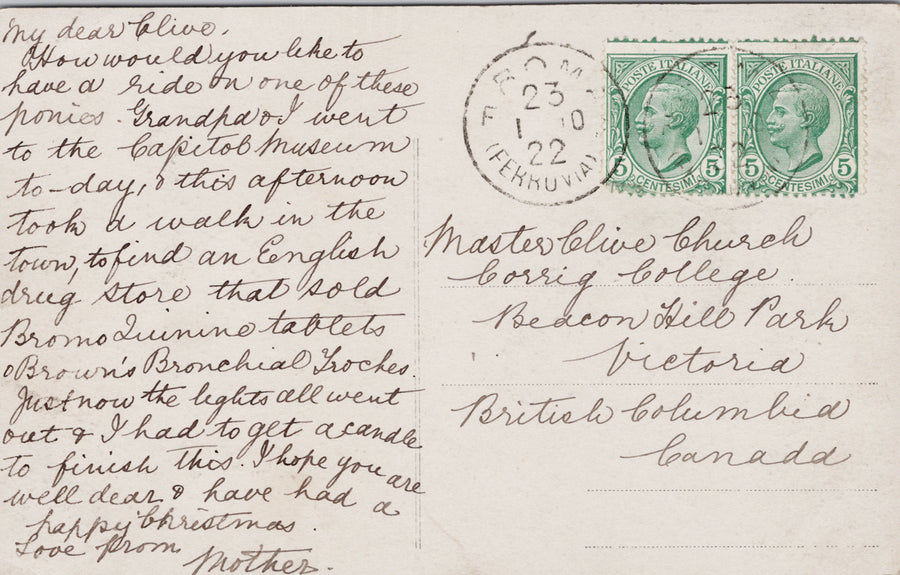 My dear Clive,
How would you like to
have a ride on one of these
ponies. Grandpa & I went
to the Capitol Museum
to-day, & this afternoon
took a walk in the
town, to find an English
drug store that sold
Bromo Quinine tablets
& Brown's Bronchial Troches.
Just now the lights all went
out & I had to get a candle
to finish this. I hope you are
well dear & have had a
happy Christmas.
Love from
Mother.
ROMA
23
1 10
22
(FERROVIA)
POSTE ITALIANE
5 CENTESIMI 5
POSTE ITALIANE
5 CENTESIMI 5
Master Clive Church
Corrig College.
Beacon Hill Park
Victoria
British Columbia
Canada